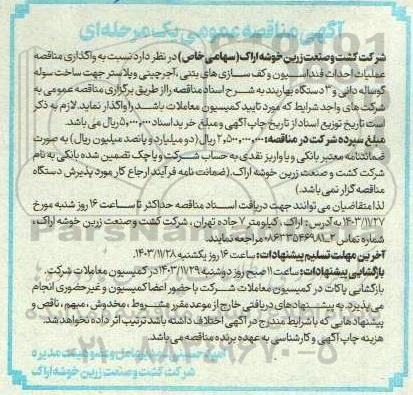 آگهی مناقصه عمومی یک مرحله‌ای
شرکت کشت و صنعت زرین خوشه اراک (سهامی خاص) در نظر دارد نسبت به واگذاری مناقصه
عملیات احداث فنداسیون و کف سازی های بتنی، آجرچینی و پلاستر جهت ساخت سوله
گوساله دانی و ۳ دستگاه بهاربند به شرح اسناد مناقصه را از طریق برگزاری مناقصه عمومی به
شرکت های واجد شرایط که مورد تایید کمیسیون معاملات باشد را واگذار نماید. لازم به ذکر
است تاریخ توزیع اسناد از تاریخ چاپ آگهی و مبلغ خرید اسناد ۵,۰۰۰,۰۰۰ ریال می باشد.
مبلغ سپرده شرکت در مناقصه: ۲,۵۰۰,۰۰۰,۰۰۰ ریال (دو میلیارد و پانصد میلیون ریال) به صورت
ضمانتنامه معتبر بانکی و یا واریز نقدی به حساب شرکت و یا چک تضمین شده بانکی به نام
شرکت کشت و صنعت زرین خوشه اراک. (ضمانت نامه فرآیند ارجاع کار مورد پذیرش دستگاه
مناقصه گزار نمی باشد.)
لذا متقاضیان می توانند جهت دریافت اسناد مناقصه حداکثر تا ساعت ۱۶ روز شنبه مورخ
۱۴۰۳/۱۱/۲۷ به آدرس: اراک، کیلومتر ۷ جاده تهران، شرکت کشت و صنعت زرین خوشه اراک،
شماره تماس مراجعه نمایند.
آخرین مهلت تسلیم پیشنهادات: ساعت ۱۶ روز یکشنبه ۱۴۰۳/۱۱/۲۸.
بازگشایی پیشنهادات: ساعت ۱۱ صبح روز دوشنبه ۱۴۰۳/۱۱/۲۹ در کمیسیون معاملات شرکت.
بازگشایی پاکات در کمیسیون معاملات شرکت با حضور اعضا کمیسیون و غیر حضوری انجام
می پذیرد. به پیشنهادهای دریافتی خارج از موعد مقرر، مشروط، مخدوش، مبهم، ناقص و
پیشنهادهایی که با شرایط مندرج در آگهی اختلاف داشته باشد ترتیب اثر داده نخواهد شد.
هزینه چاپ آگهی و کارشناسی به عهده برنده مناقصه می باشد.
مدیرعامل و عضو هیئت مدیره
شرکت کشت و صنعت زرین خوشه اراک
ParsNamadData
۰۲۱-۸۸۳۴۹۶۷۰-۵